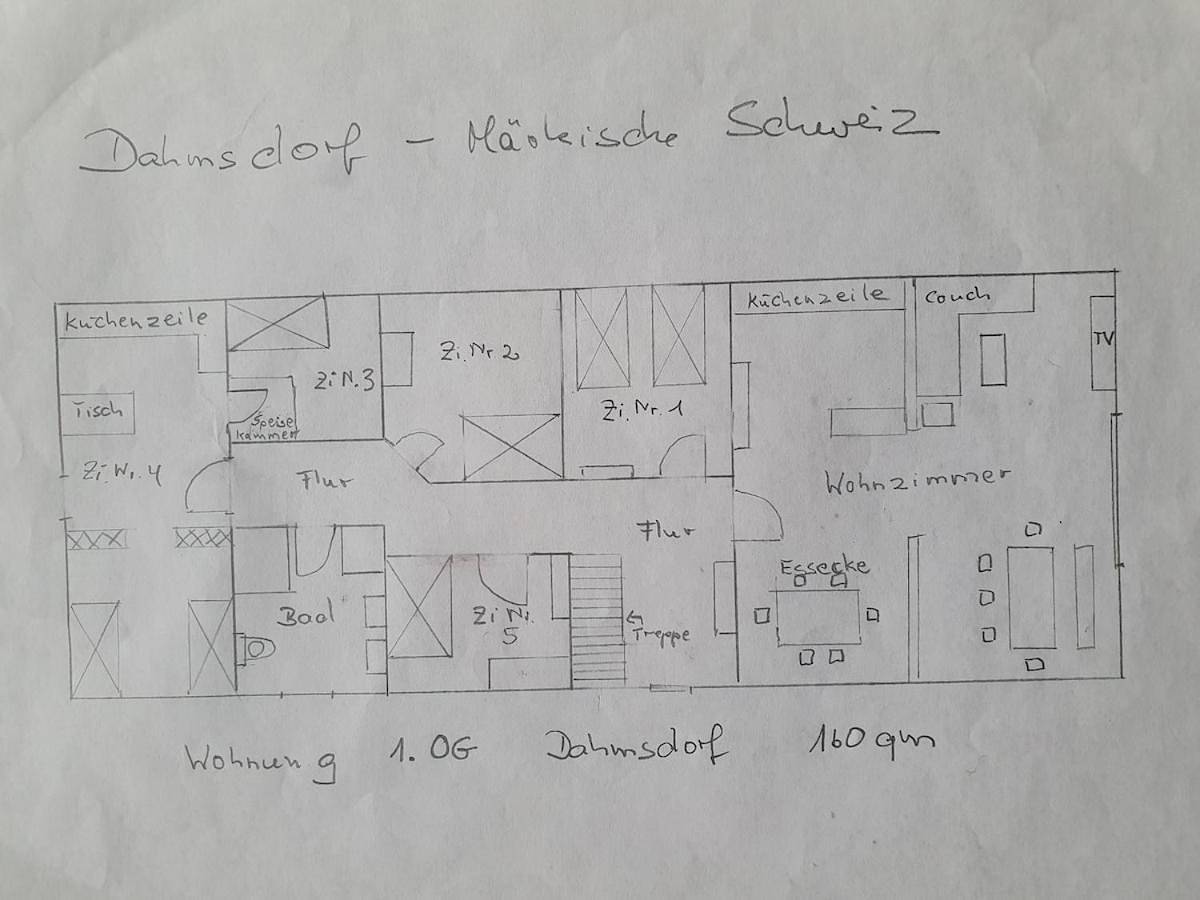 Dahmsdorf - Märkische Schweiz
Küchenzeile
Küchenzeile
Couch
TV
Zi. Nr 2
Zi N. 3
Zi. Nr. 1
Tisch
Speise
kammer
Zi Nr. 4
Flur
Wohnzimmer
Flur
Essecke
Bad
Zi Nr.
5
Treppe
Wohnung 1. OG Dahmsdorf 160 qm